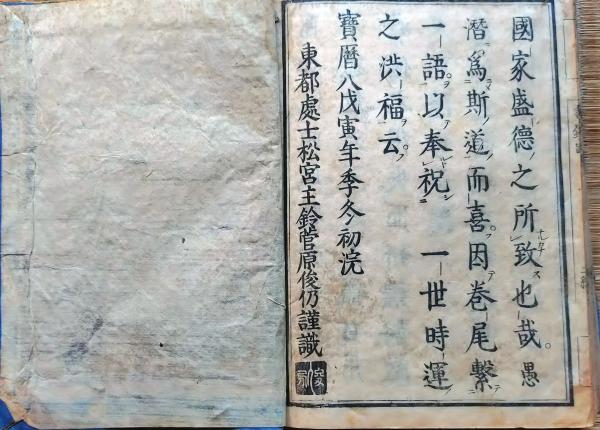 國家盛德之所致也哉愚
潛爲斯道而喜因卷尾繫
一語以奉祝 一世時運
之洪福云
寶曆八戊寅年季冬初浣
東都處士松宮主鈴菅原俊仍謹識